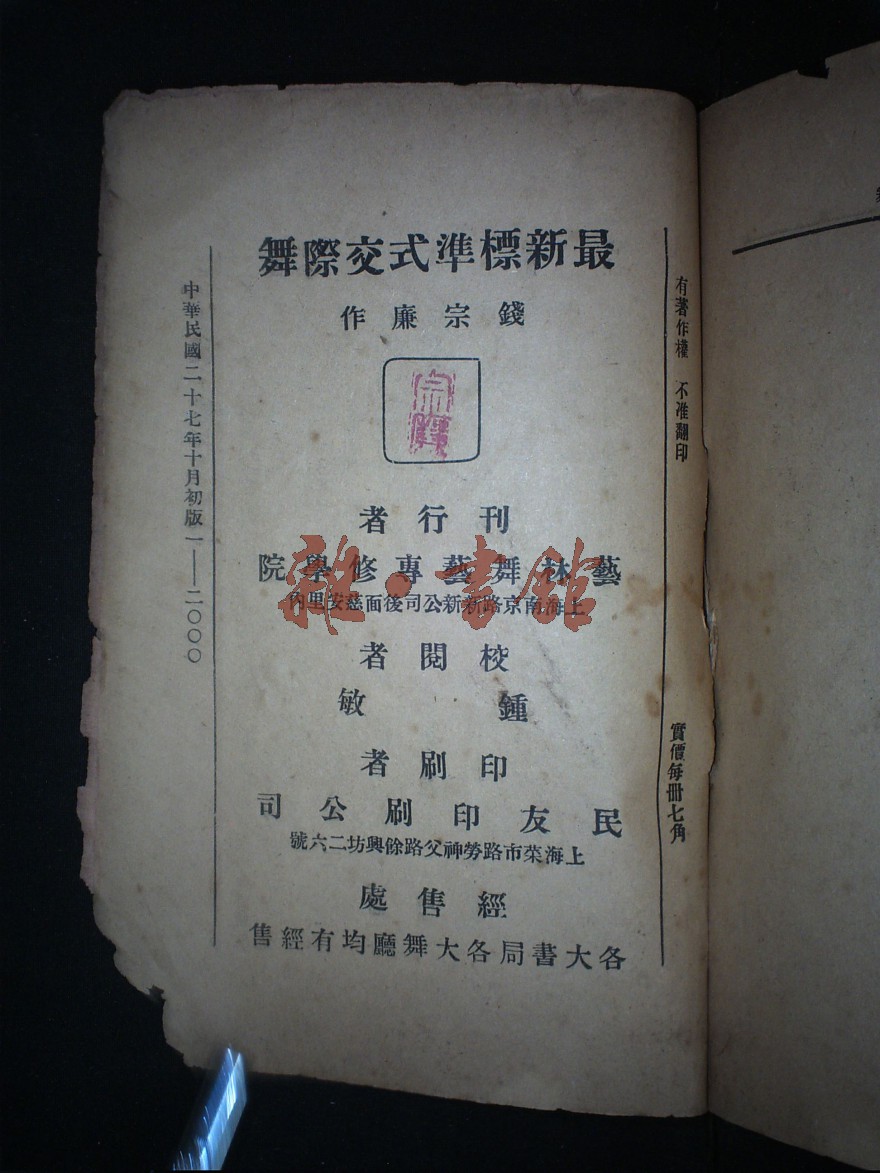 有著作權　不准翻印
實價每冊七角
最新標準式交際舞
錢宗廉作
宗廉
刊行者
藝林舞藝專修學院
上海南京路新新公司後面慈安里內
校閱者
鍾敏
印刷者
民友印刷公司
上海菜市路勞神父路餘興坊二六號
經售處
各大書局各大舞廳均有經售
中華民國二十七年十月初版一——二〇〇〇
雜·書館